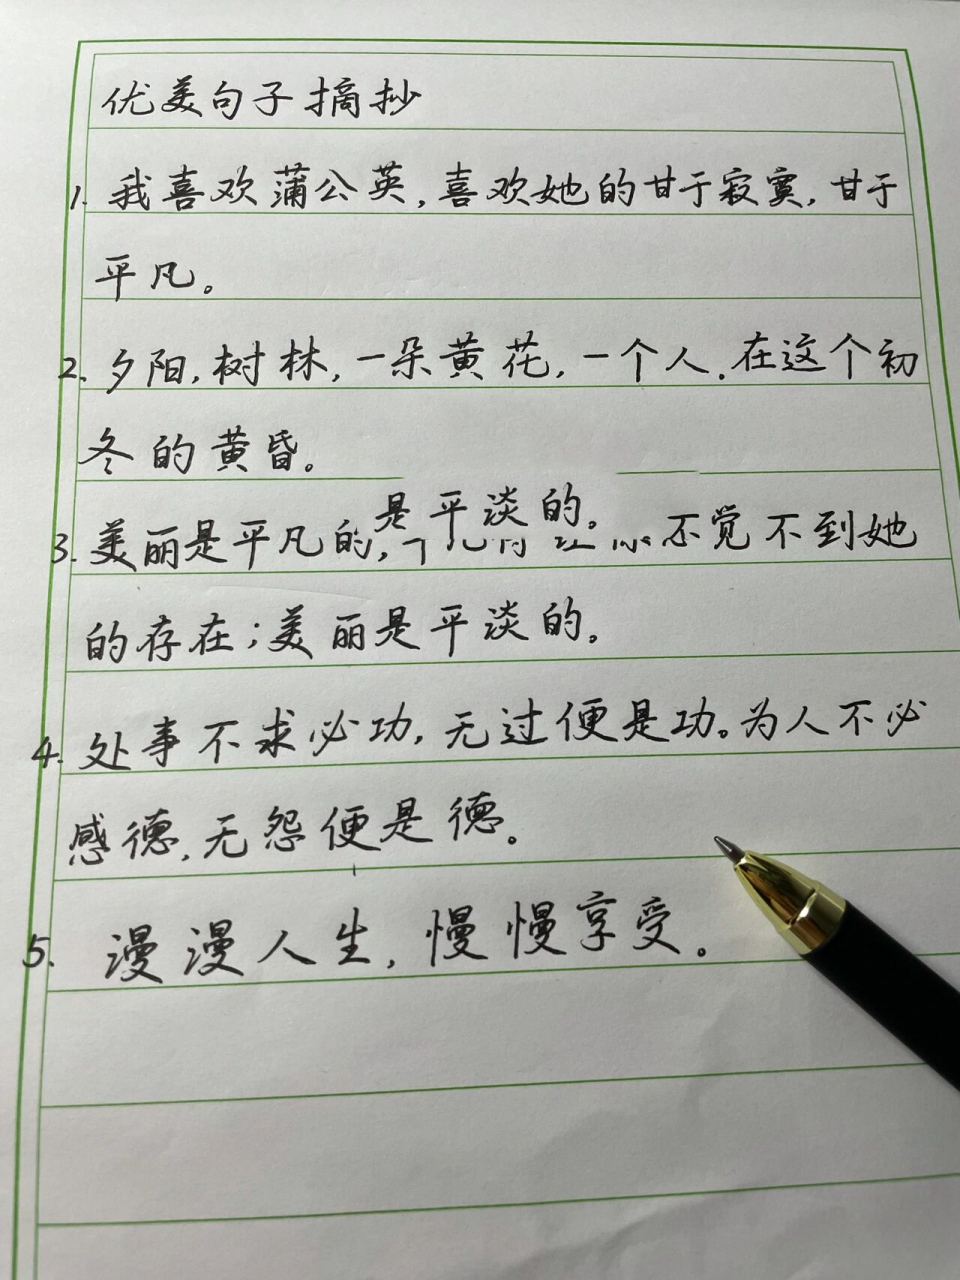 优美句子摘抄
1. 我喜欢蒲公英,喜欢她的甘于寂寞,甘于
平凡。
2. 夕阳,树林,一朵黄花,一个人,在这个初
冬的黄昏。
是平淡的。
3. 美丽是平凡的,不觉不到她
的存在;美丽是平淡的。
4. 处事不求必功,无过便是功。为人不必
感德,无怨便是德。
5. 漫漫人生,慢慢享受。